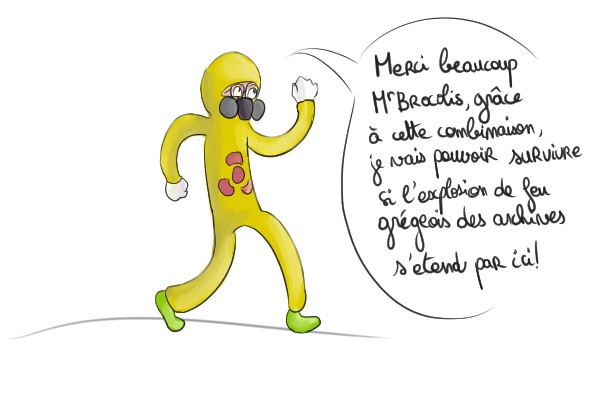 Merci beaucoup
Mr Brocolis, grâce
à cette combinaison,
je vais pouvoir survivre
si l'explosion de feu
grégeois des archives
s'etend par ici!